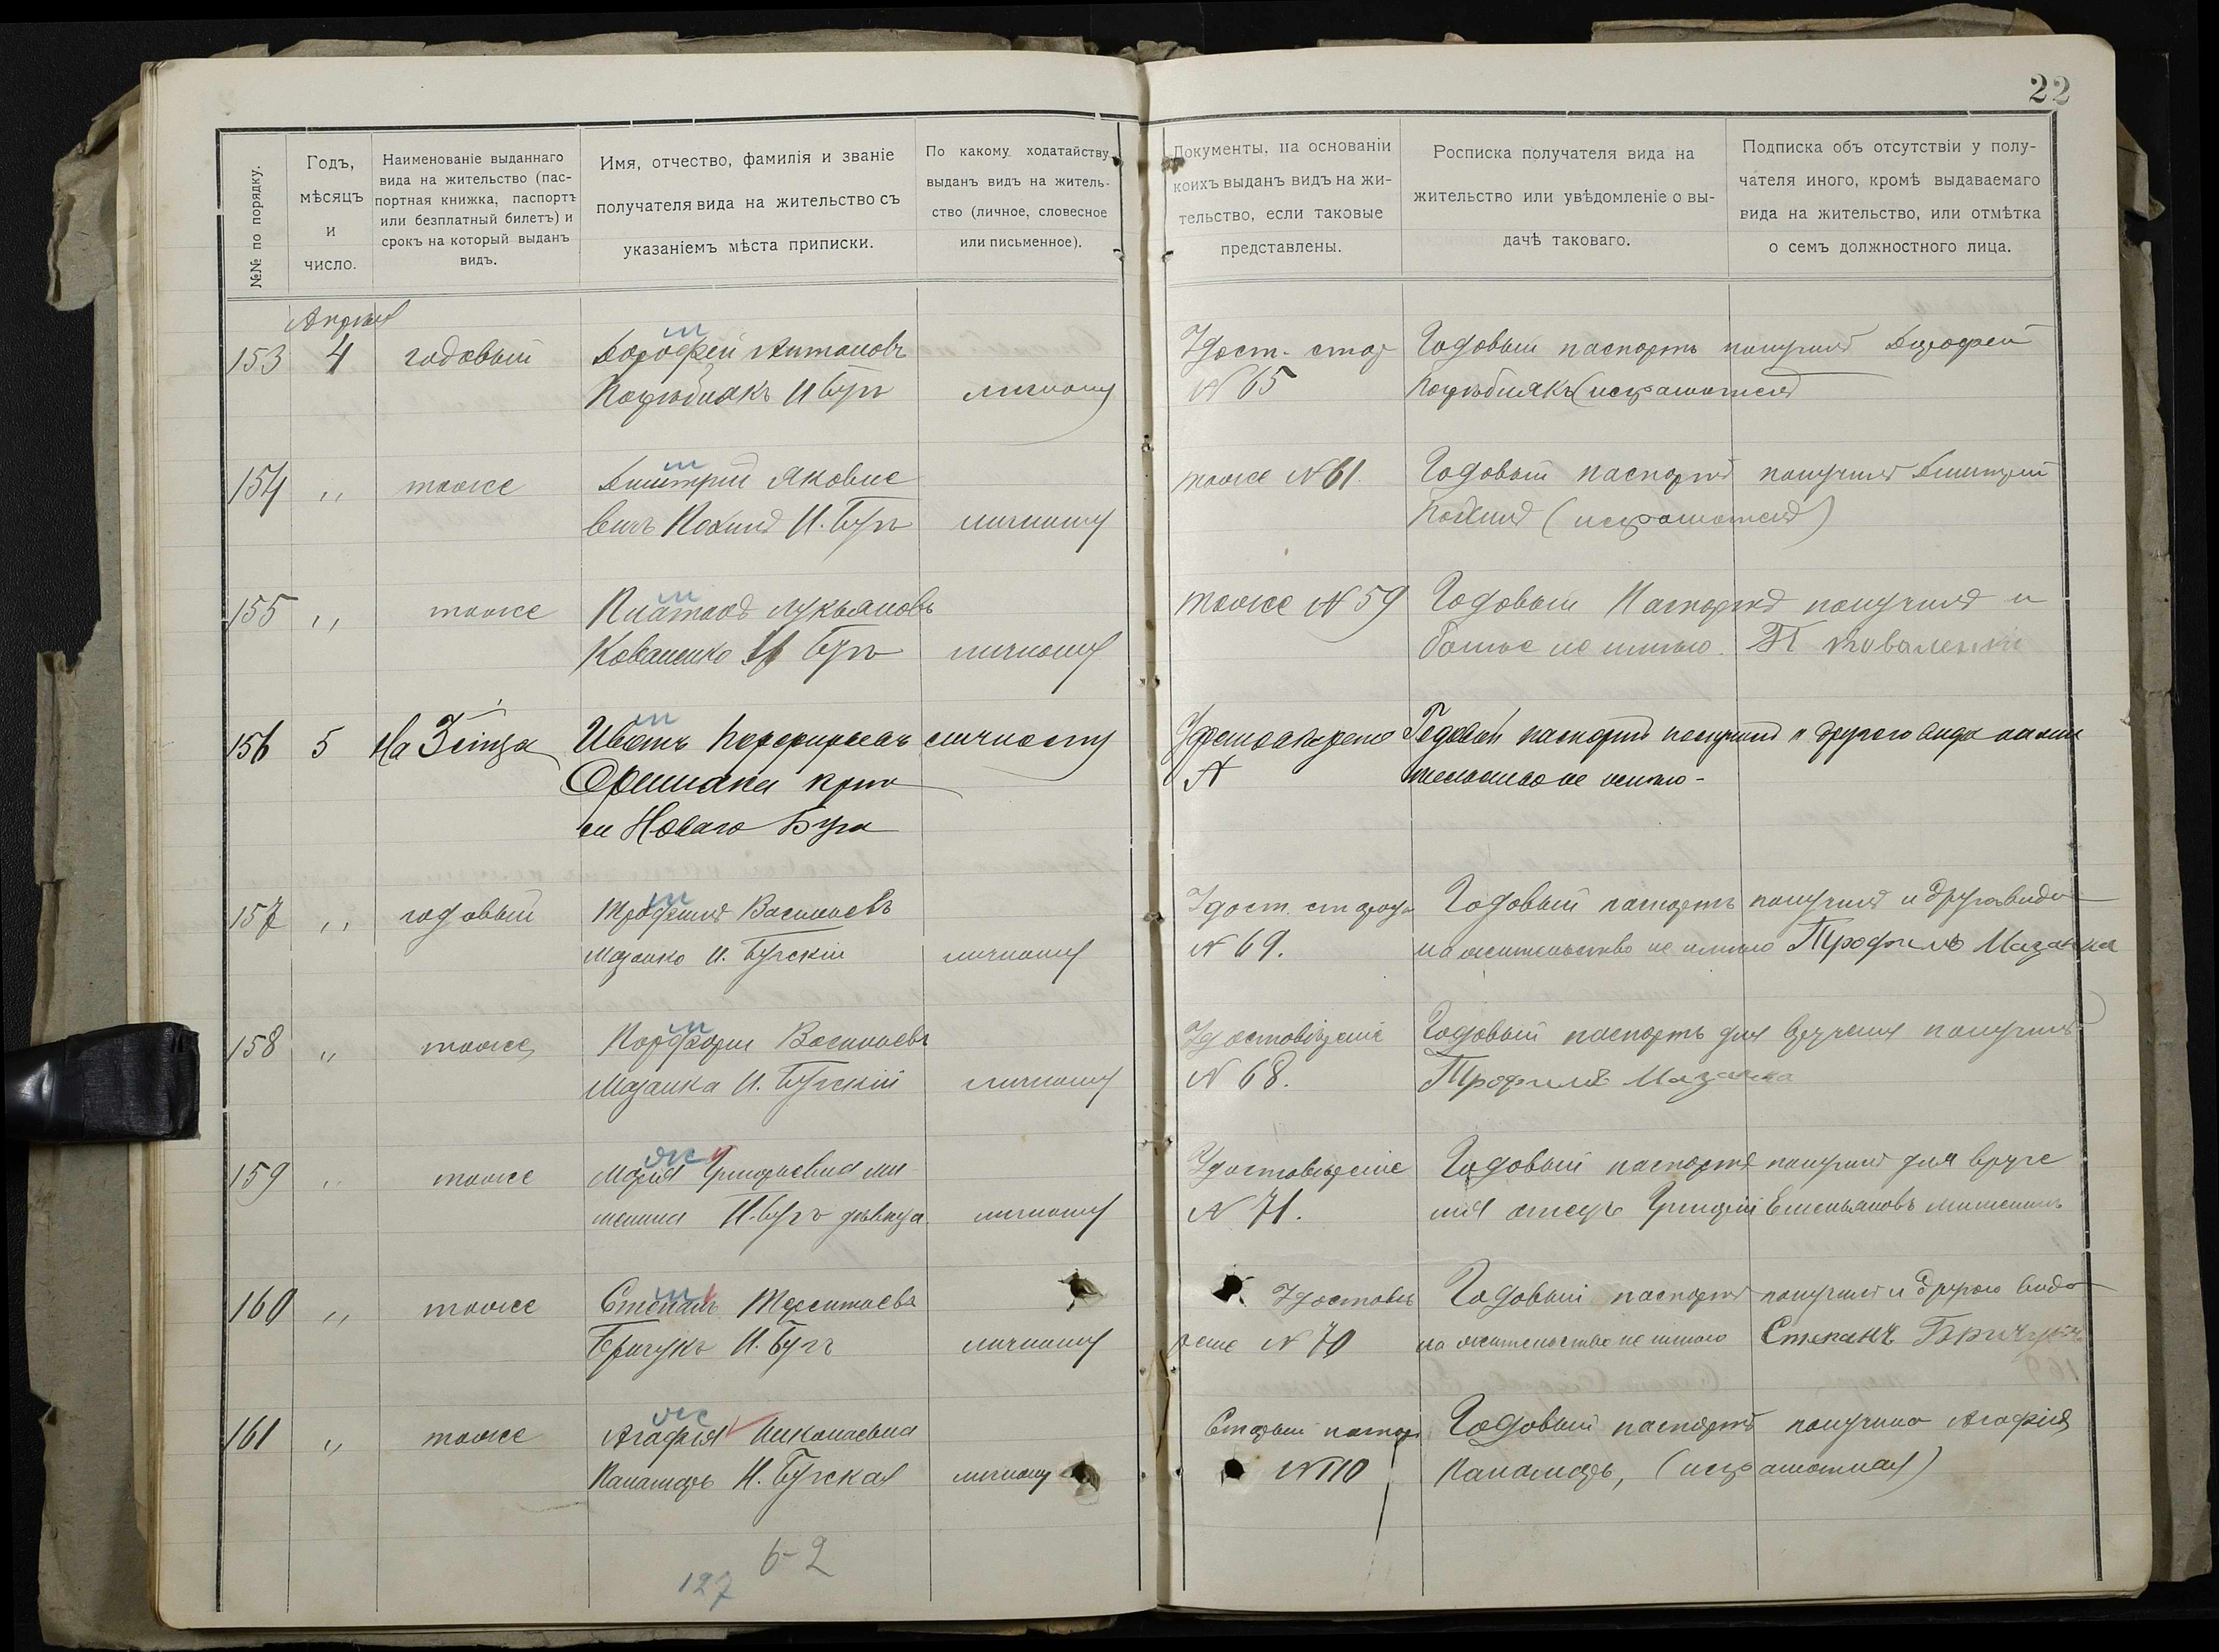 22
№№ по порядку.
Годъ, мѣсяцъ и число.
Наименованіе выданнаго
вида на жительство (пас-
портная книжка, паспортъ
или безплатный билетъ) и
срокъ на который выданъ
видъ.
Имя, отчество, фамилія и званіе
получателя вида на жительство съ
указаніемъ мѣста приписки.
По какому ходатайству
выданъ видъ на житель-
ство (личное, словесное
или письменное).
Документы, на основаніи
коихъ выданъ видъ на жи-
тельство, если таковые
представлены.
Росписка получателя вида на
жительство или увѣдомленіе о вы-
дачѣ таковаго.
Подписка объ отсутствіи у полу-
чателя иного, кромѣ выдаваемаго
вида на жительство, или отмѣтка
о семъ должностного лица.
Апрѣля
153 4 годовый Дорофей Антоновъ
Н Бугъ личному
Удост. стар Годовый паспортъ получилъ Дорофей
N 65
154 " тоже Дмитрій Яковле
вичъ Н. Бугъ личному
тоже N 61. Годовый паспортъ получилъ Дмитрій
155 " тоже Платонъ Лукьяновъ
Коваленко Н Бугъ личному
тоже N 59 Годовый Паспортъ получилъ и
болѣе не имѣю. П Коваленко
156 5 На 3 мѣсяца Иванъ Порфирьевъ личному
кр
с Новаго Буга
N Годовой паспортъ получилъ и другого вида на жи
тельство не имѣю -
157 " годовый Трофимъ Васильевъ
Мазанко Н. Бугскій личному
Удост. старосты Годовый паспортъ получилъ и друг вида
N 69. на жительство не имѣю Трофимъ Мазанка
158 " тоже Порфирій Васильевъ
Мазанка Н. Бугскій личному
Удостовѣреніе Годовый паспортъ для врученія получилъ
N 68. Трофимъ Мазанка
159 " тоже Марія Григорьевна Ми
Н-Бугъ дѣвица личному
Удостовѣреніе Годовый паспортъ получилъ для вруче
N 71. нія отецъ Григорій Емельяновъ
160 " тоже Степанъ Терентьевъ
Бричукъ Н. Бугъ личному
Удостовѣ Годовый паспортъ получилъ и другого вида
реніе N 70 на жительство не имѣю Степанъ Бричукъ
161 " тоже Агафія Николаевна
Паламарь Н. Бугская личному
Старый паспор Годовый паспортъ получила Агафія
N 110 Паламарь, (неграмотная)
6-2
127